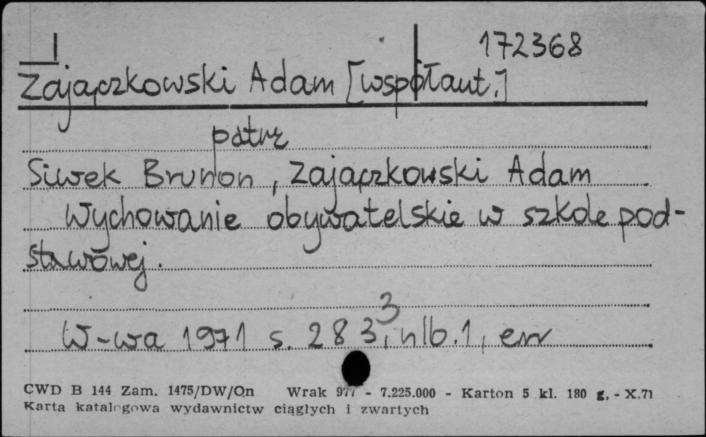 I 172368
Zajączkowski Adam [współaut.]
patrz
Siwek Brunon, Zajączkowski Adam
Wychowanie obywatelskie w szkole pod-
stawowej.
W-wa 1971 s. 283, 3 nlb. 1, err
CWD B 144 Zam. 1475/DW/On Wrak 977 - 7.225.000 - Karton 5 kl. 180 g. - X.71
Karta katalogowa wydawnictw ciągłych i zwartych